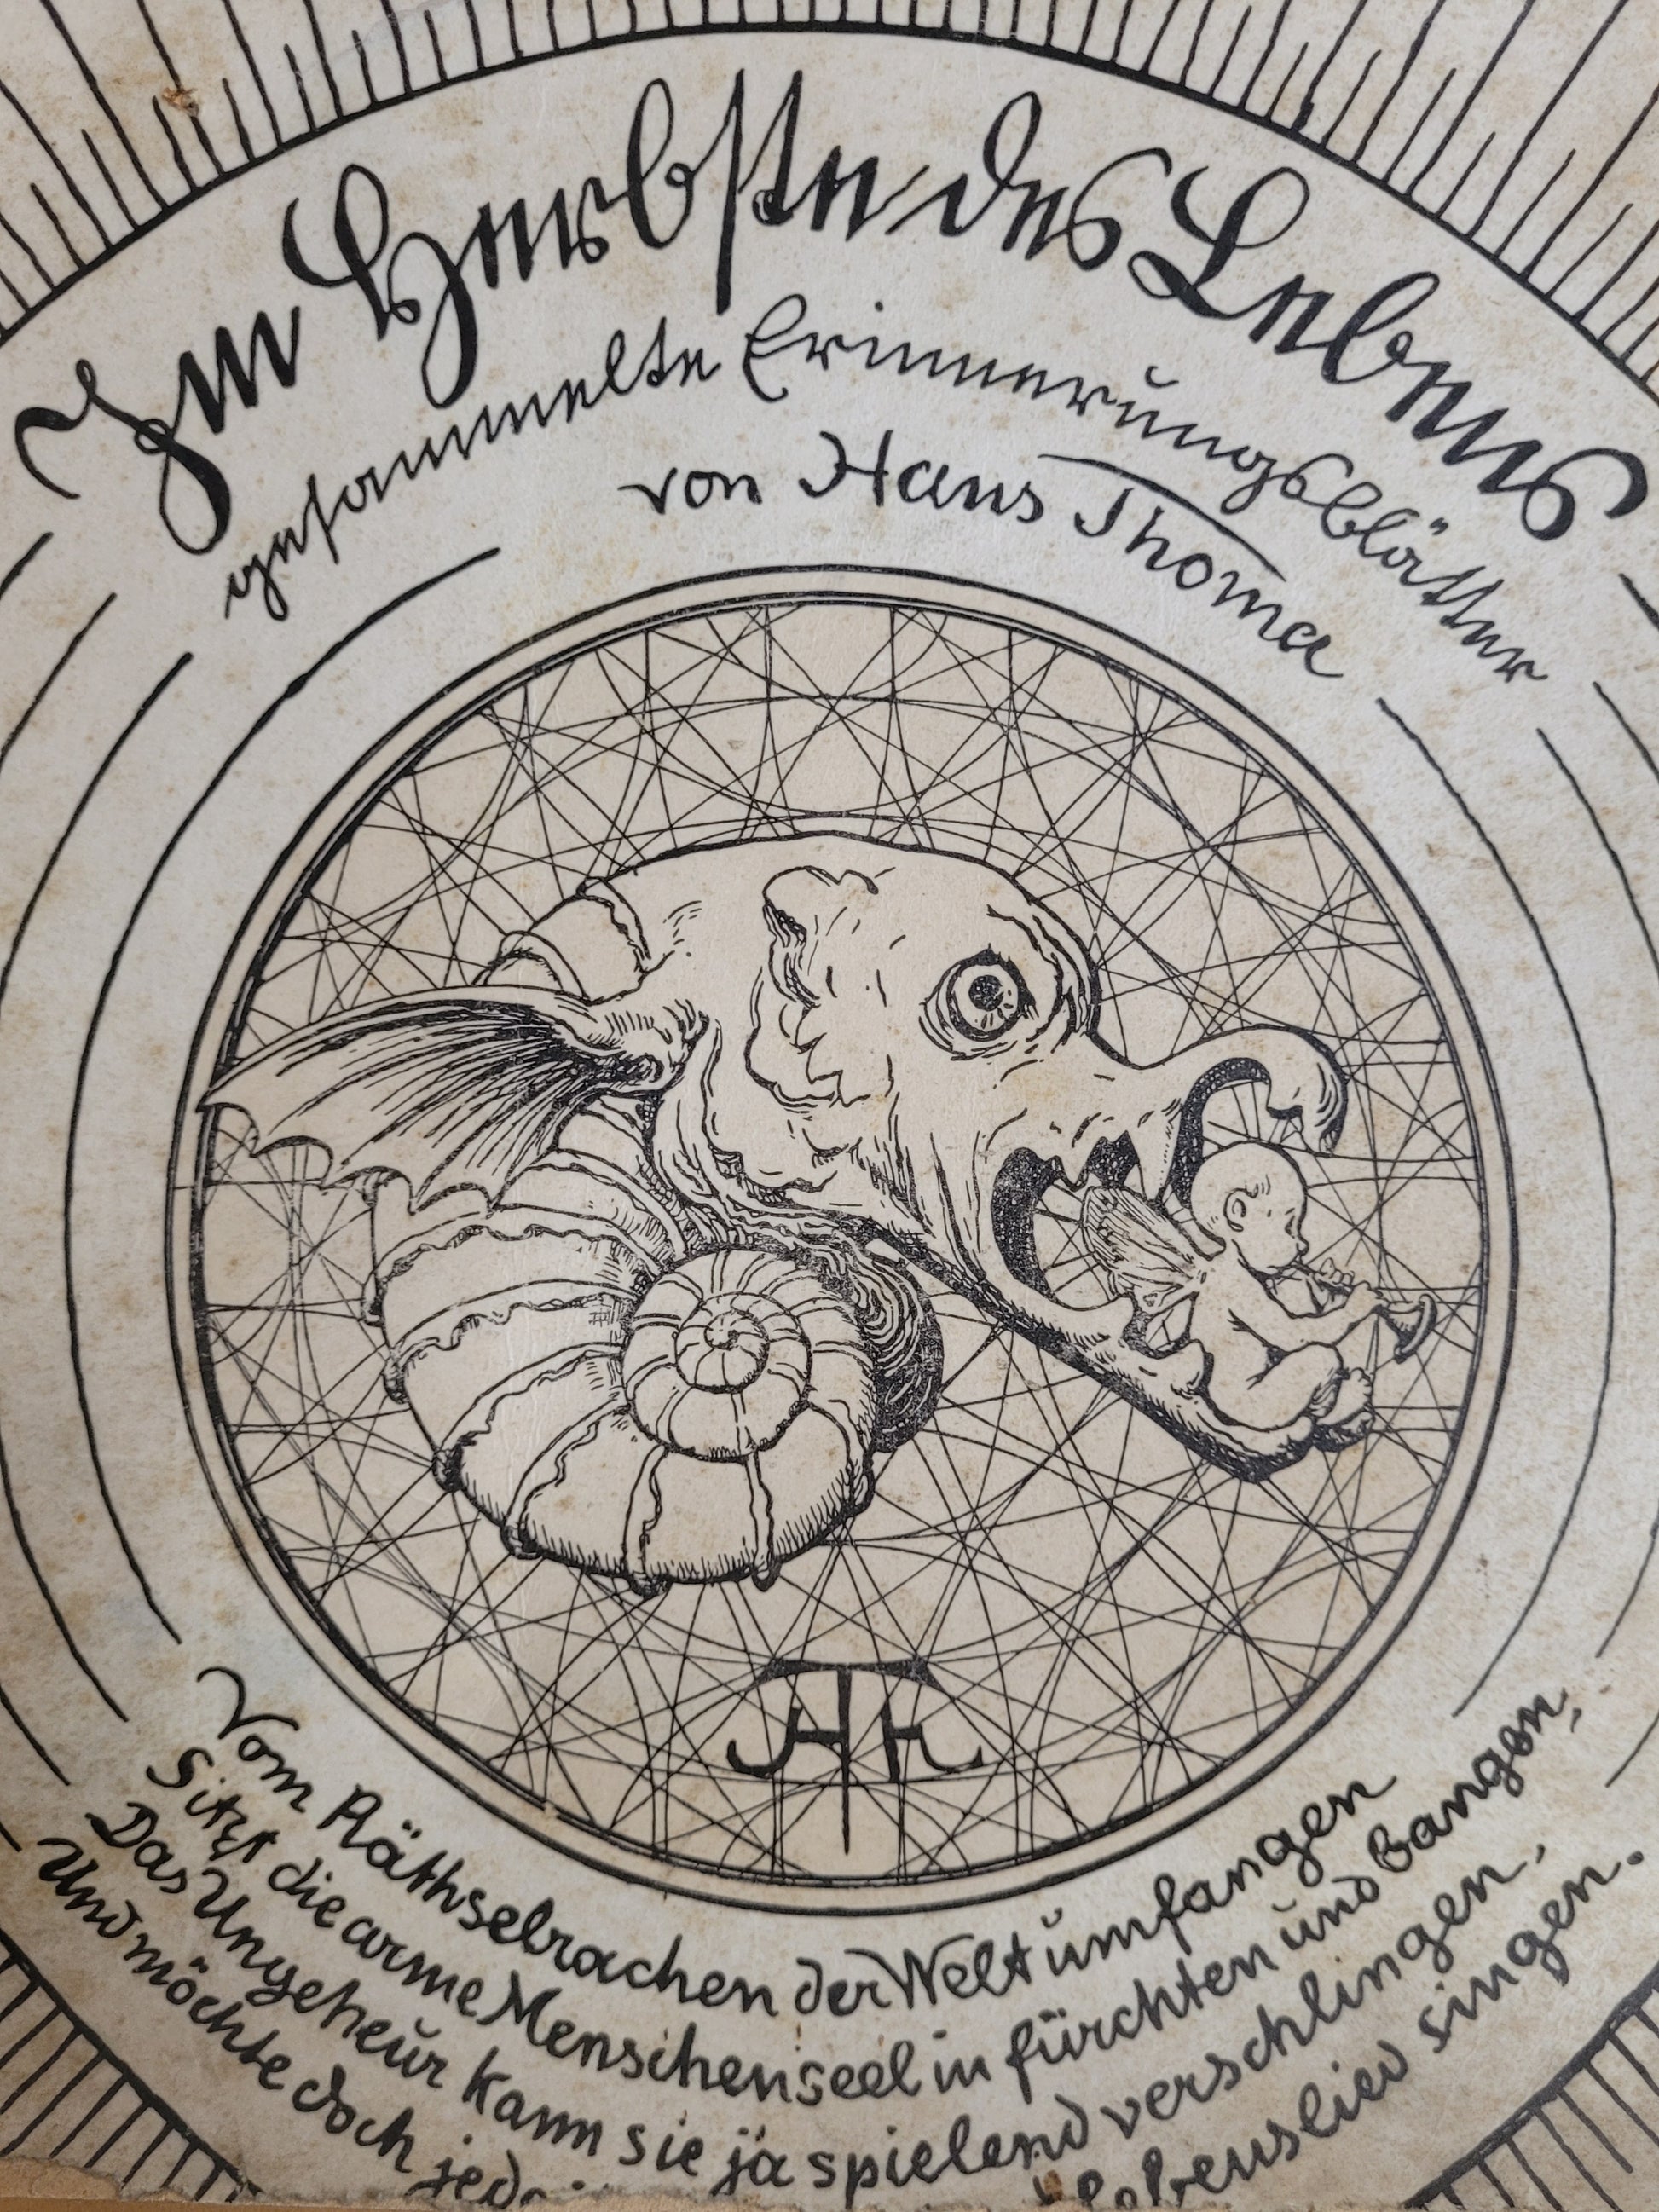 Im Herbste des Lebens
gesammelte Erinnerungsblätter
von Hans Thoma
HTh
Vom Räthselrachen der Welt umfangen
Sitzt die arme Menschenseel in fürchten und bangen,
Das Ungeheur kann sie ja spielend verschlingen,
Und möchte doch jed Lebenslied singen.